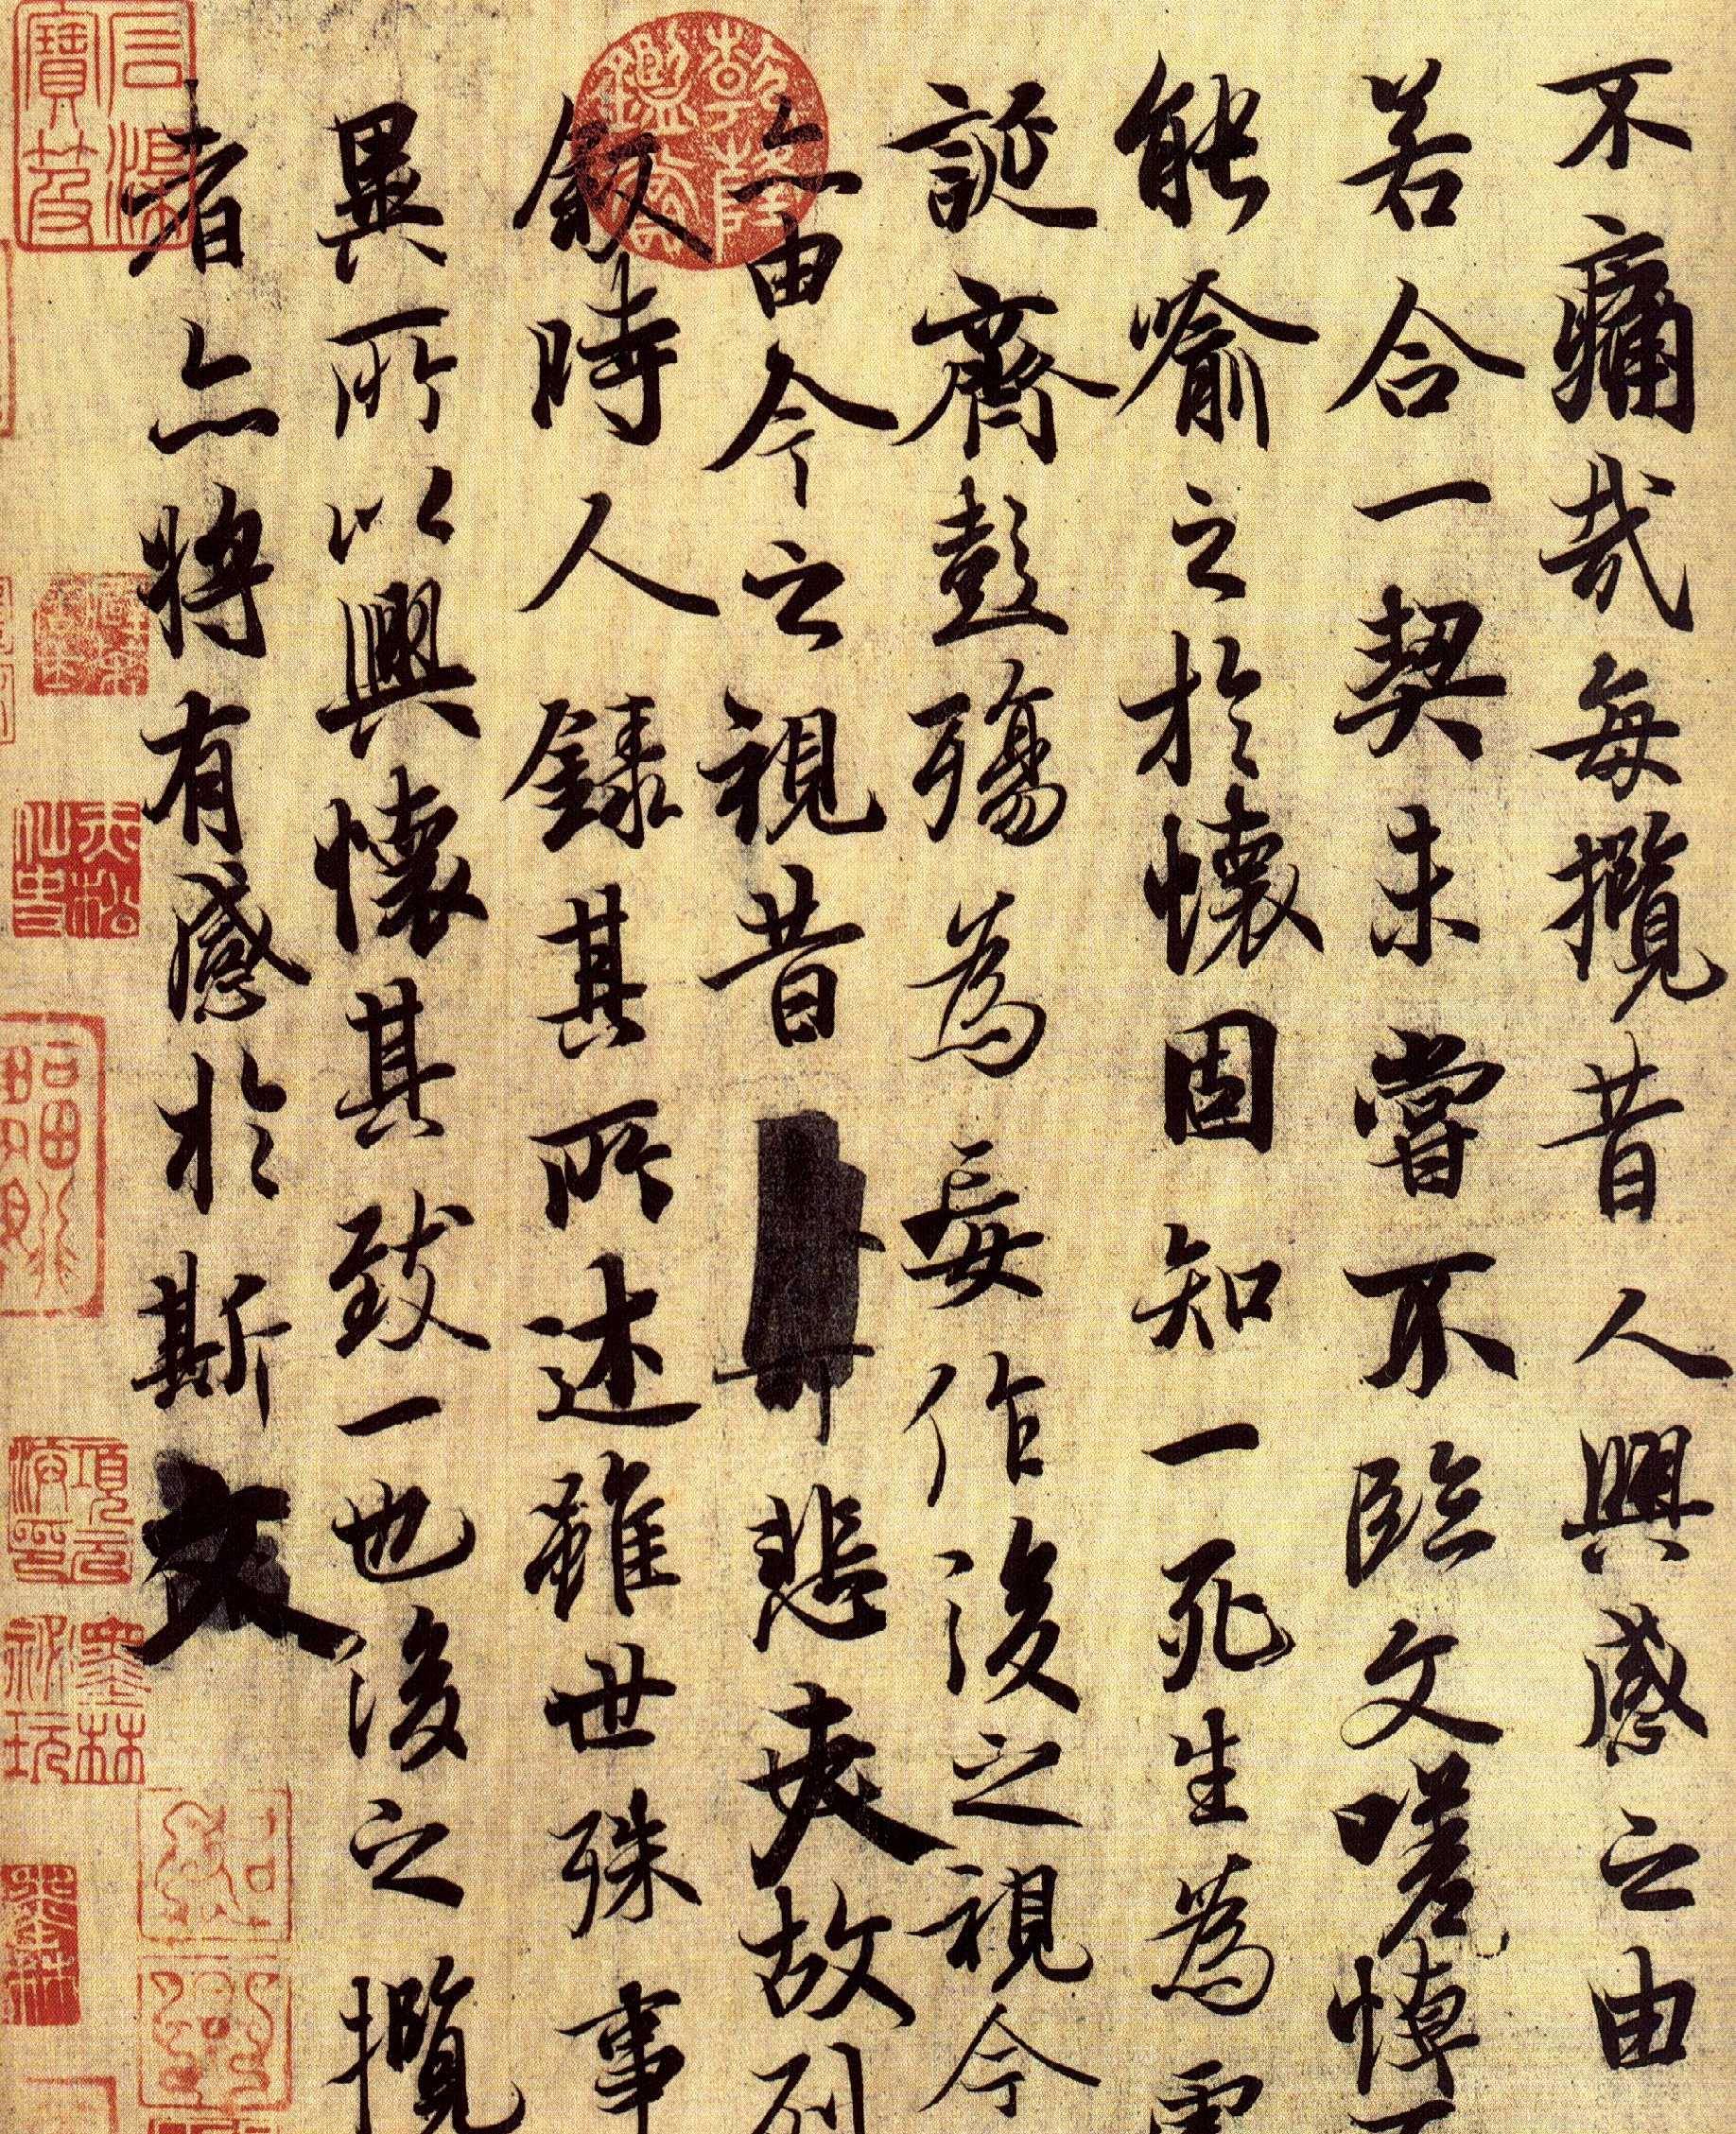 不痛哉每攬昔人興感之由
若合一契未嘗不臨文嗟悼
能喻之於懷固知一死生為虛
誕齊彭殤為妄作後之視今
亦由今之視昔悲夫故列
敘時人錄其所述雖世殊事
異所以興懷其致一也後之攬
者亦將有感於斯文
乾隆鑑賞
石渠寶笈
項元汴印
墨林祕玩